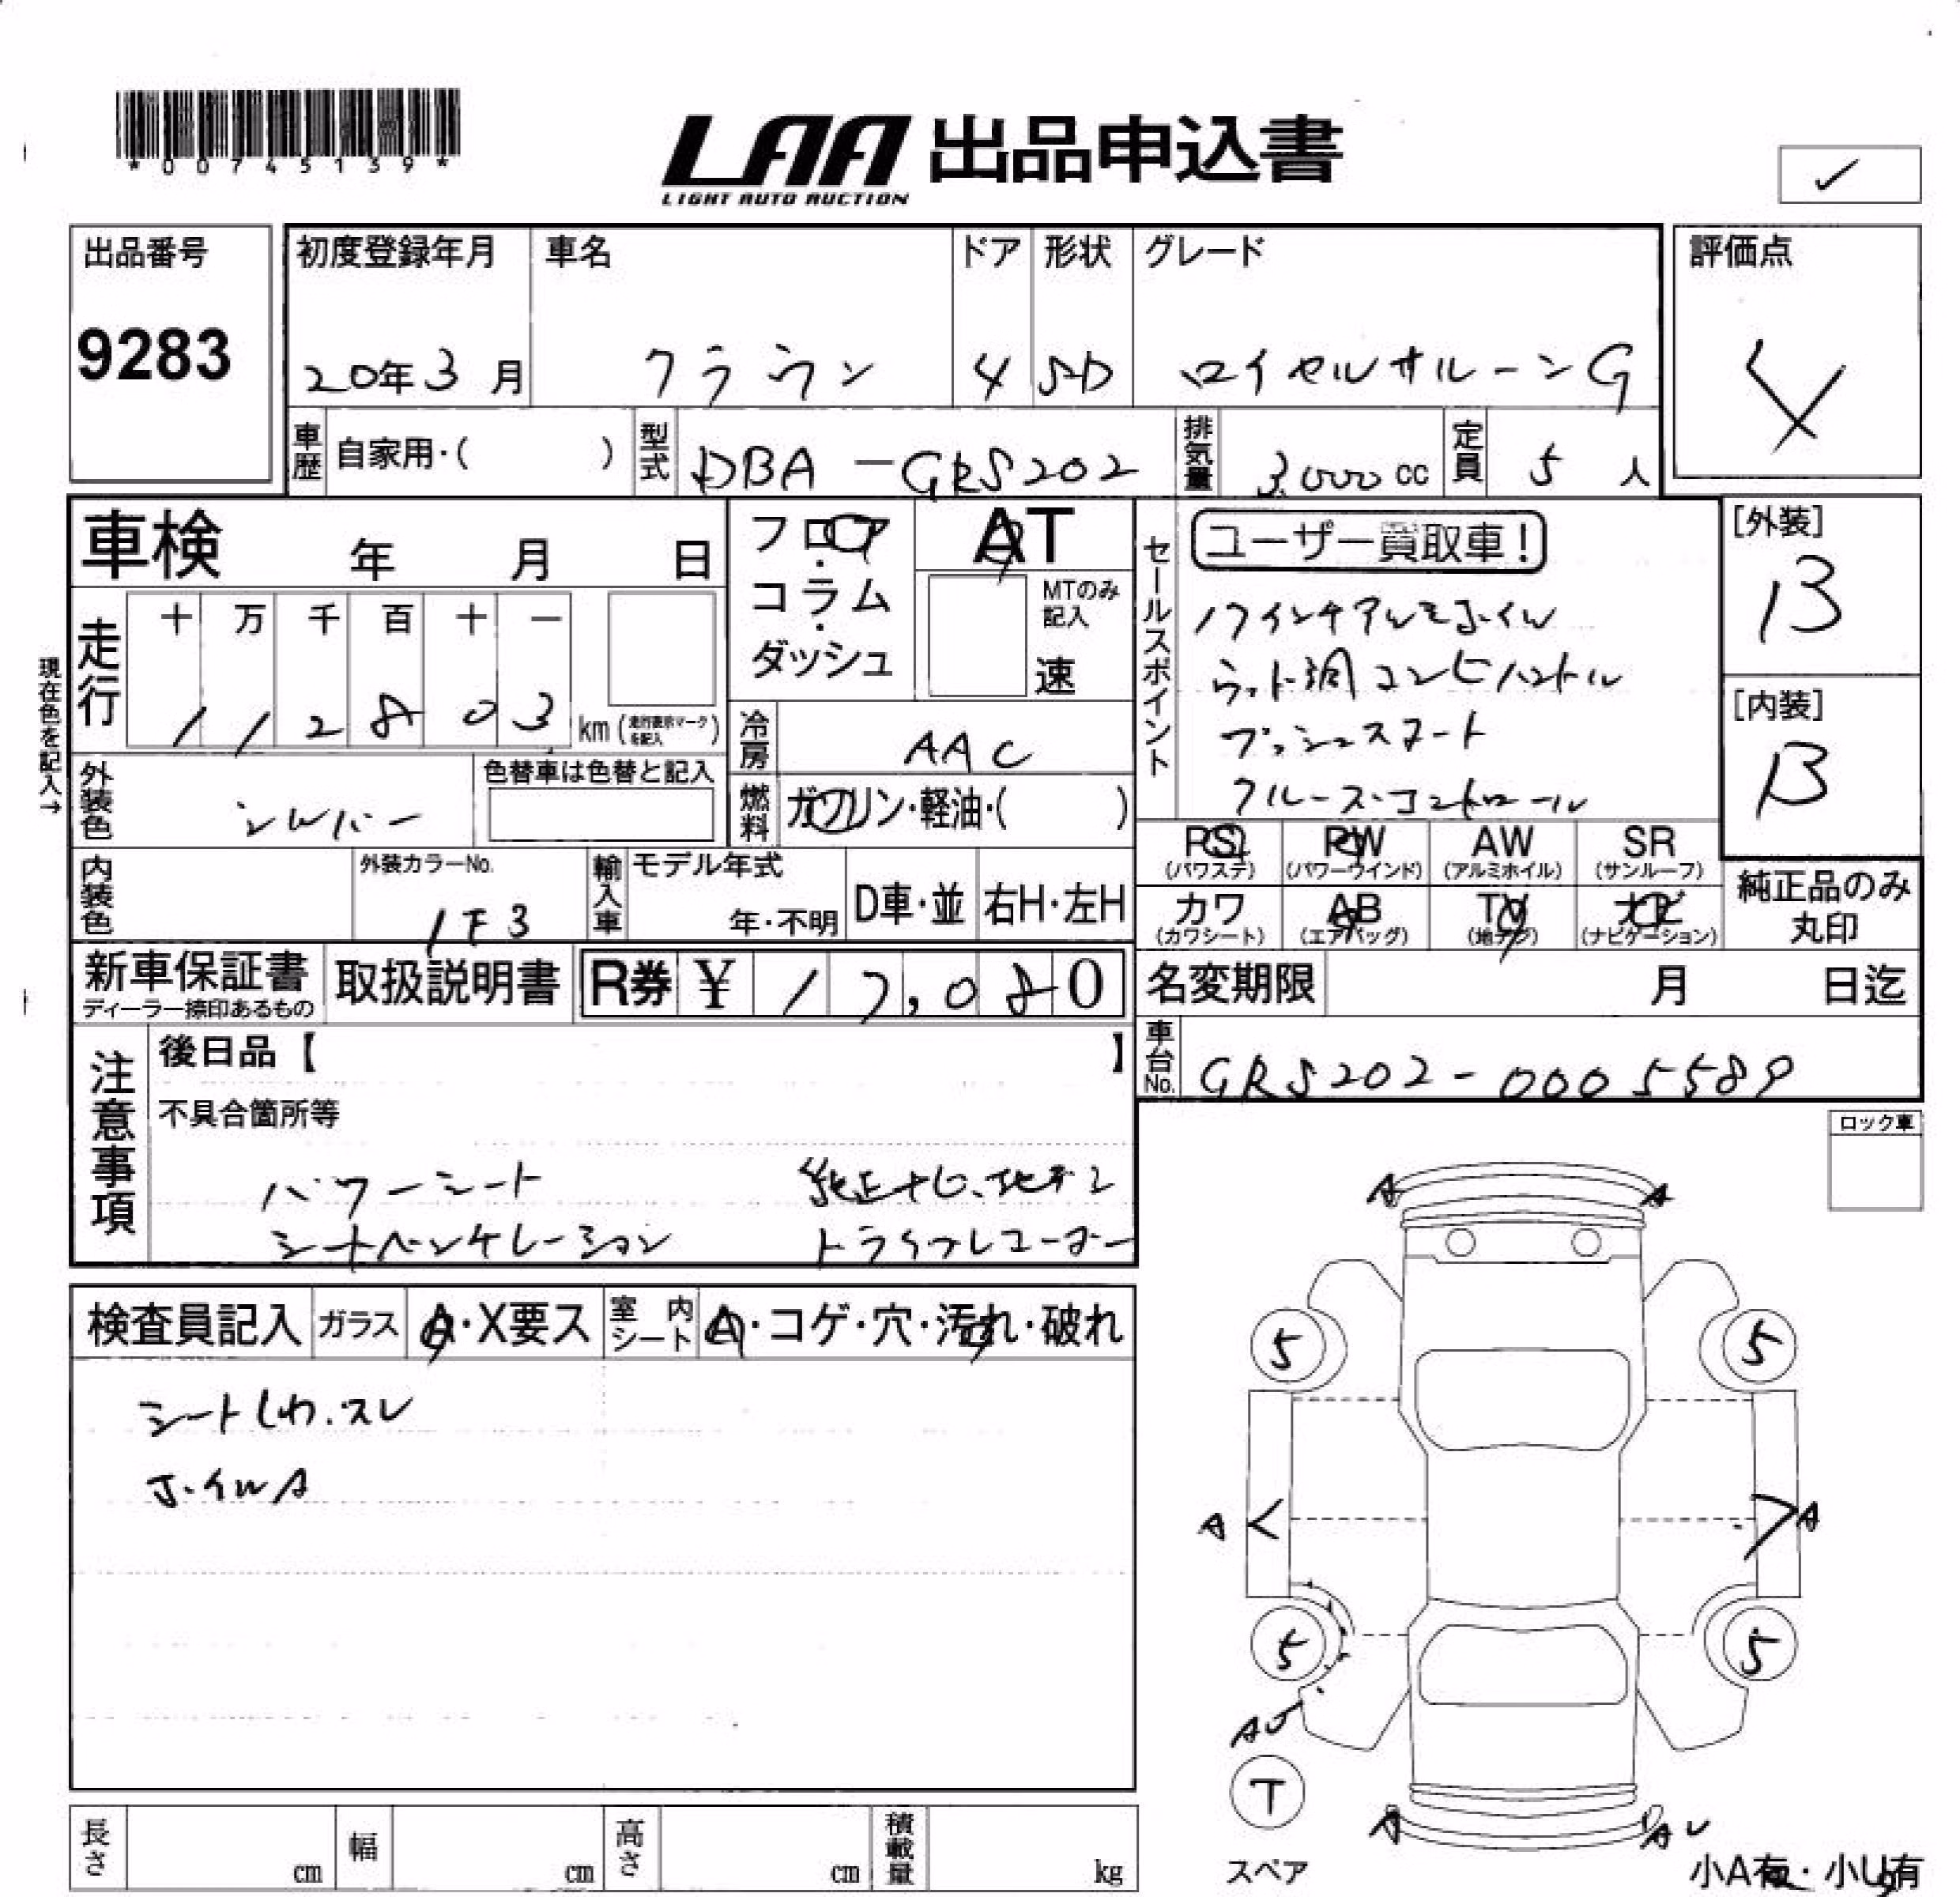 *00745139*
LAA 出品申込書
LIGHT AUTO AUCTION
✓
出品番号 初度登録年月 車名 ドア 形状 グレード 評価点
9283 20年3月 クラウン 4 SD ロイヤルサルーンG 4
車歴 自家用・( ) 型式 DBA-GRS202 排気量 3,000cc 定員 5人
車検 年 月 日
フロア・コラム・ダッシュ
AT
MTのみ記入
速
セールスポイント
ユーザー買取車!
17インチアルミホイル
ウッド調コンビハンドル
プッシュスタート
クルーズコントロール
[外装]
B
[内装]
B
現在色を記入→
走行 十 万 千 百 十 一
112803 km(走行表示マークを記入)
冷房 AAC
外装色 シルバー 色替車は色替と記入
燃料 ガソリン・軽油・( )
PS PW AW SR
(パワステ) (パワーウインド) (アルミホイル) (サンルーフ)
カワ AB TV ナビ
(カワシート) (エアバッグ) (地デジ) (ナビゲーション)
純正品のみ
丸印
内装色 外装カラーNo. 1F3 輸入車 モデル年式 年・不明 D車・並 右H・左H
新車保証書 取扱説明書 R券 ¥17,080
ディーラー捺印あるもの
名変期限 月 日迄
車台No. GRS202-0005589
注意事項
後日品【 】
不具合箇所等
パワーシート 純正ナビ、地デジ
シートベンチレーション ドライブレコーダー
ロック車
検査員記入 ガラス A・X要ス 室内シート A・コゲ・穴・汚れ・破れ
シートしわ.スレ
ホイルA
A A
5 5
A A
5 5
AU
T
スペア
A AU
小A有・小U有
長さ cm 幅 cm 高さ cm 積載量 kg